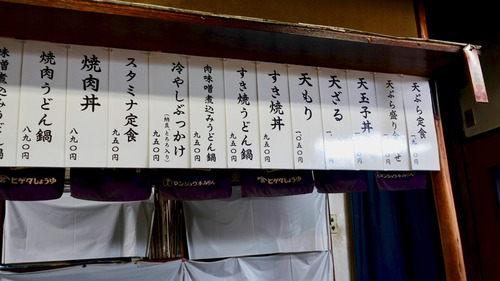 天ぷら定食
九五〇円
天ぷら盛り
せ
天玉子丼
九五〇円
天ざる
天もり
一〇五〇円
すき焼丼
九五〇円
すき焼うどん鍋
九五〇円
肉味噌煮込みうどん鍋
九五〇円
冷やしぶっかけ
(納豆ととろろ)
九五〇円
スタミナ定食
九五〇円
焼肉丼
八九〇円
焼肉うどん鍋
八九〇円
味噌煮込みうどん鍋
九五〇円
ヒゲタしょうゆ
マンジョウ本みりん
ヒゲタしょうゆ